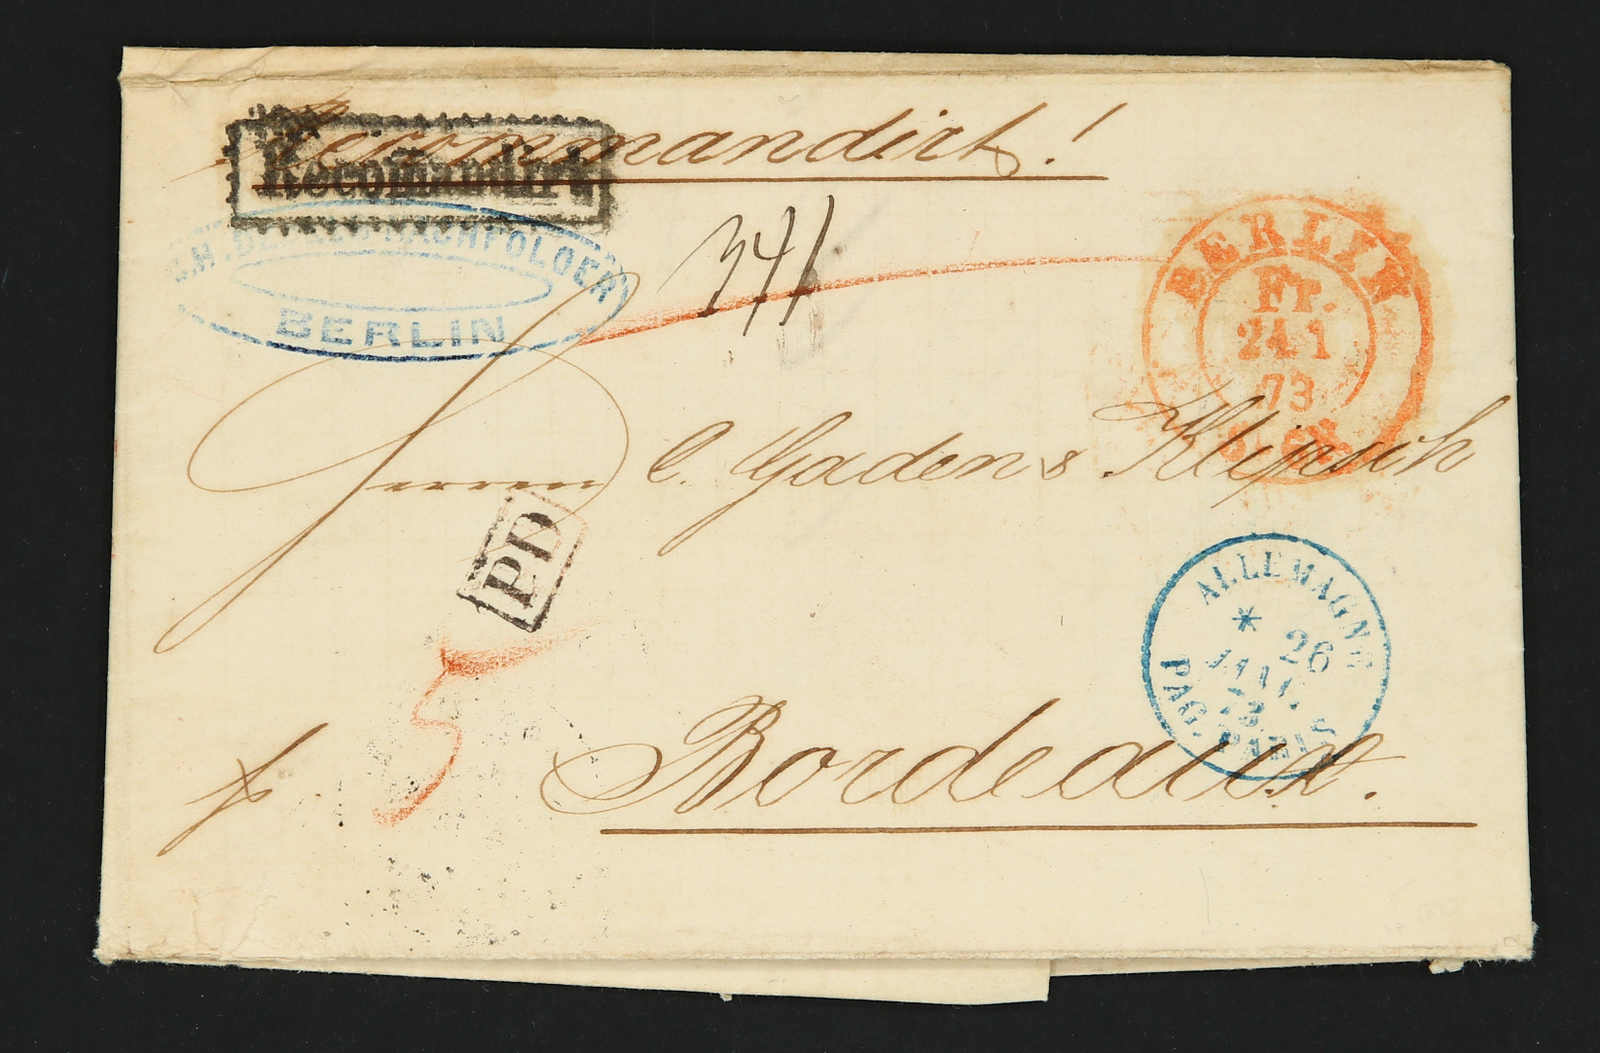 Recommandirt!
Recom̄andirt
NACHFOLGER
BERLIN
341
BERLIN
Fr.
24 1
73
Herren C. Gaden & Klipsch
PD
ALLEMAGNE
26
JANV.
73
PAG. PARIS
5
p Bordeaux.